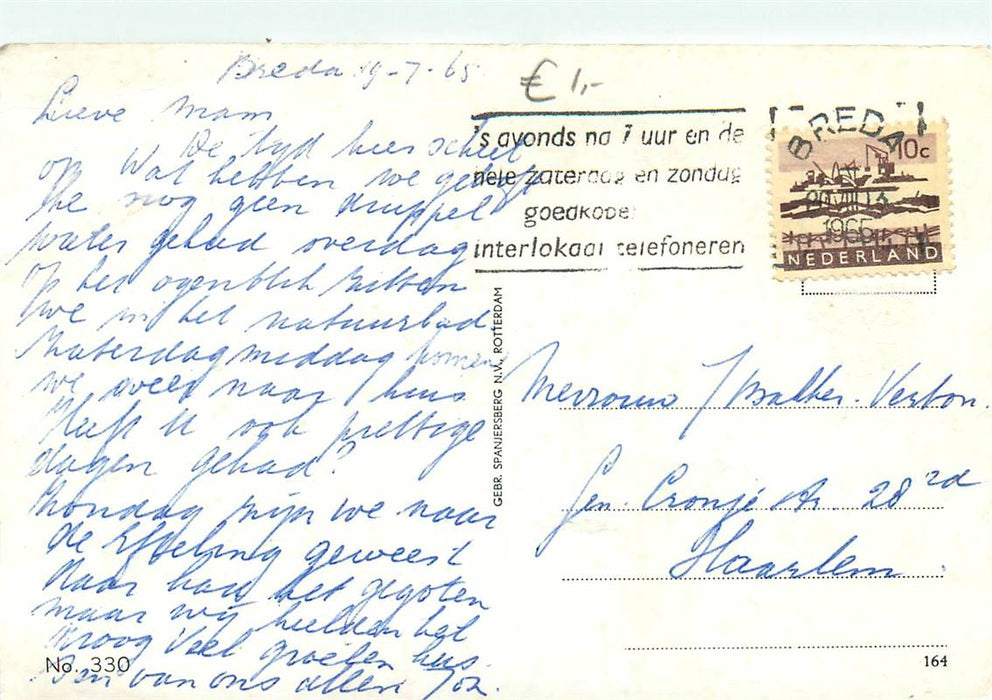 Breda 19-7-65
€ 1,-
Lieve Mam
De tijd hier schiet
op Wat hebben we
nog geen druppel
water gehad overdag
Op het ogenblik zitten
we in het natuurbad
Zaterdagmiddag komen
we weer naar huis
Heeft U ook prettige
dagen gehad?
Zondag zijn we naar
de Efteling geweest
Daar had het gegoten
maar wij hielden het
droog Veel groeten
van ons allen
No. 330
's avonds na 7 uur en de
hele zaterdag en zondag
goedkoper
interlokaal telefoneren
BREDA
1965
10c
NEDERLAND
GEBR. SPANJERSBERG N.V., ROTTERDAM
Mevrouw Bakker-Verton.
Gen. Cronjé str. 28 rd
Haarlem
164